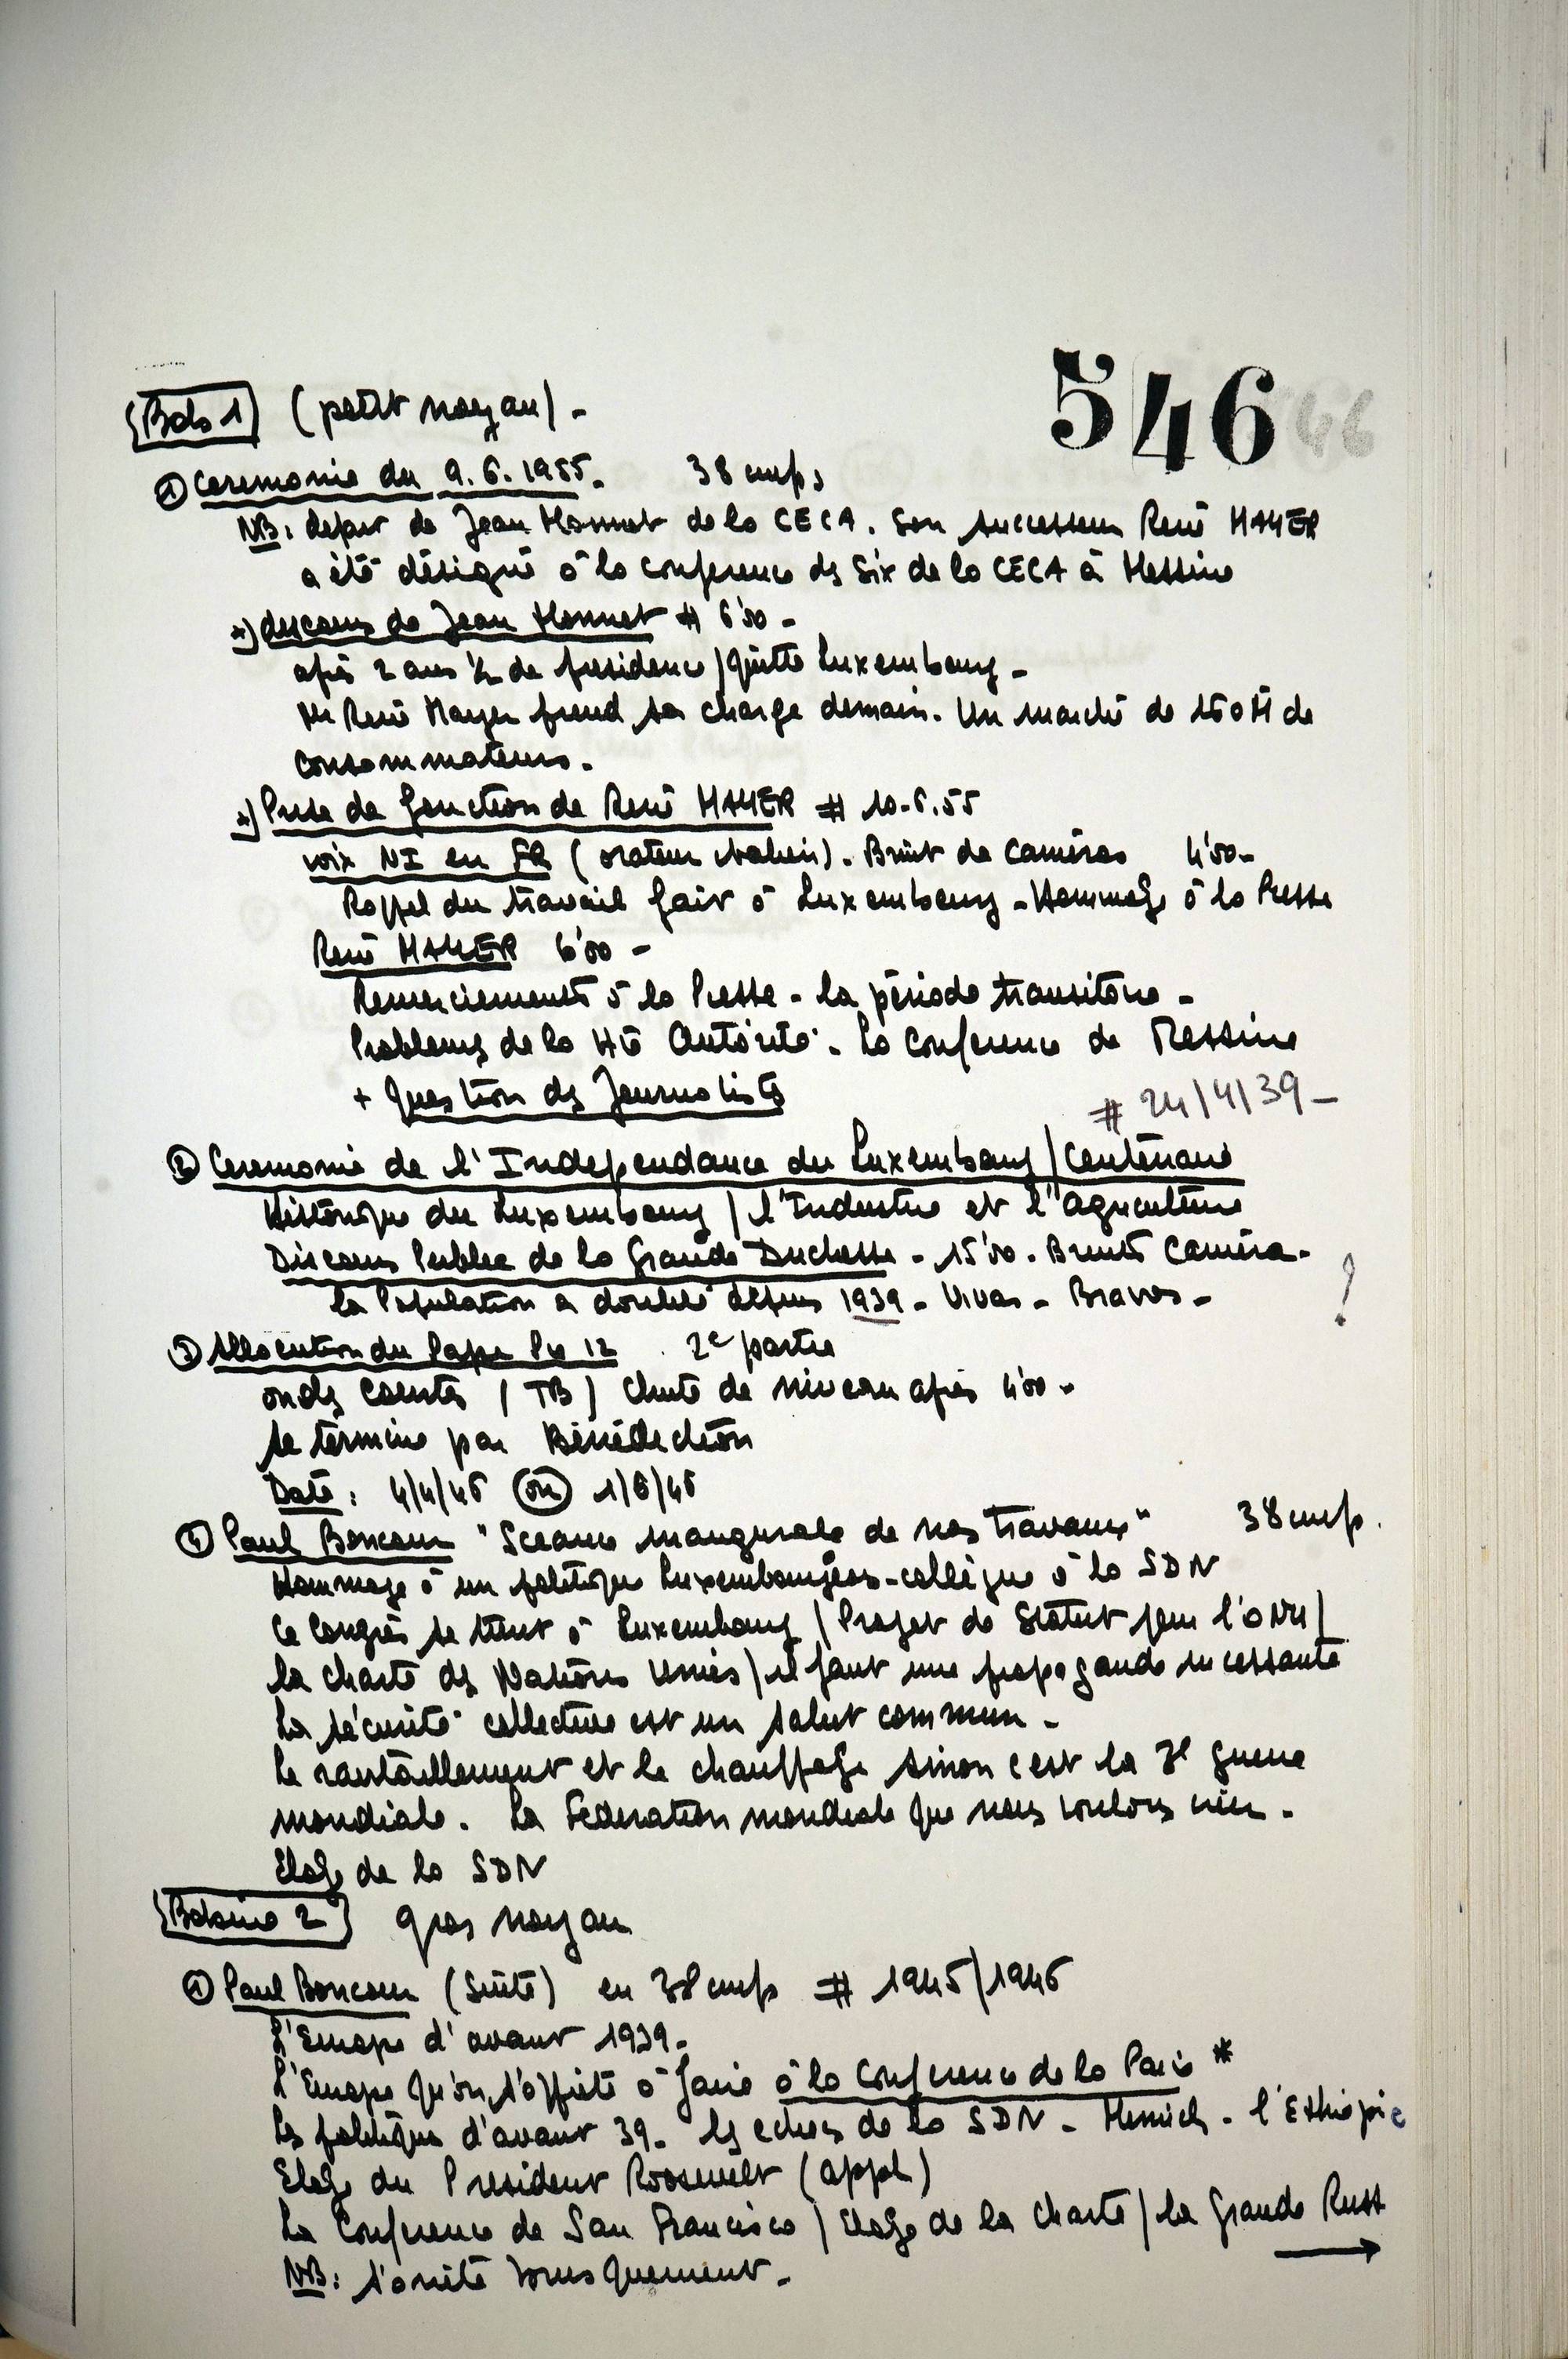 546
Bob 1 (petit noyau) -
① Ceremonie du 9.6.1955. 38 cm/s
NB: depart de Jean Monnet de la CECA. Son successeur René MAYER
a été désigné à la conference des Six de la CECA à Messine
*) discours de Jean Monnet # 6'30 -
après 2 ans ½ de presidence / quitte Luxembourg -
Mr René Mayer prend sa charge demain. Un marché de 160 M de
consommateurs.
*) Prise de fonction de René MAYER # 10-6.55
voix NI en FR (orateur italien). Bruit de caméras 4'50 -
Rappel du travail fait à Luxembourg - Hommage à la Presse
René MAYER 6'00 -
Remerciements à la Presse - la période transitoire -
Problemes de la Hte Autorité - La Conference de Messine
+ Question des Journalistes
# 24/4/39 -
② Ceremonie de l'Independance du Luxembourg / Centenaire
Historique du Luxembourg / l'Industrie et l'agriculture
Discours Public de la Grande Duchesse - 15'30 - Bruits Caméra -
la Population a doublé depuis 1939 - Vivas - Bravos - !
③ Allocution du Pape Pie 12 . 2e partie
ondes courtes (TB) chute de niveau après 4'00 -
se termine par Bénédiction
Date : 4/4/46 ou 1/6/46
④ Paul Boncour "Sceance inaugurale de nos travaux" 38 cm/s.
Hommage à un politique Luxembourgeois - collègue à la SDN
Ce Congrès se tient à Luxembourg / Projet de Statut pour l'ONU /
la charte des Nations Unies / il faut une propagande incessante
La sécurité collective est un salut commun -
Le ravitaillement et le chauffage sinon c'est la 3e guerre
mondiale. La Federation mondiale que nous voulons créer -
Eloge de la SDN
Bobine 2 gros noyau
① Paul Boncour (Suite) en 38 cm/s # 1945/1946
L'Europe d'avant 1939 -
L'Europe qu'on s'apprête à faire à la Conference de la Paix *
Les politiques d'avant 39 - les echecs de la SDN - Munich - l'Ethiopie
Eloge du President Roosevelt (appl)
La Conference de San Francisco / Eloge de la Charte / la Grande Russ
NB: s'arrête brusquement - →